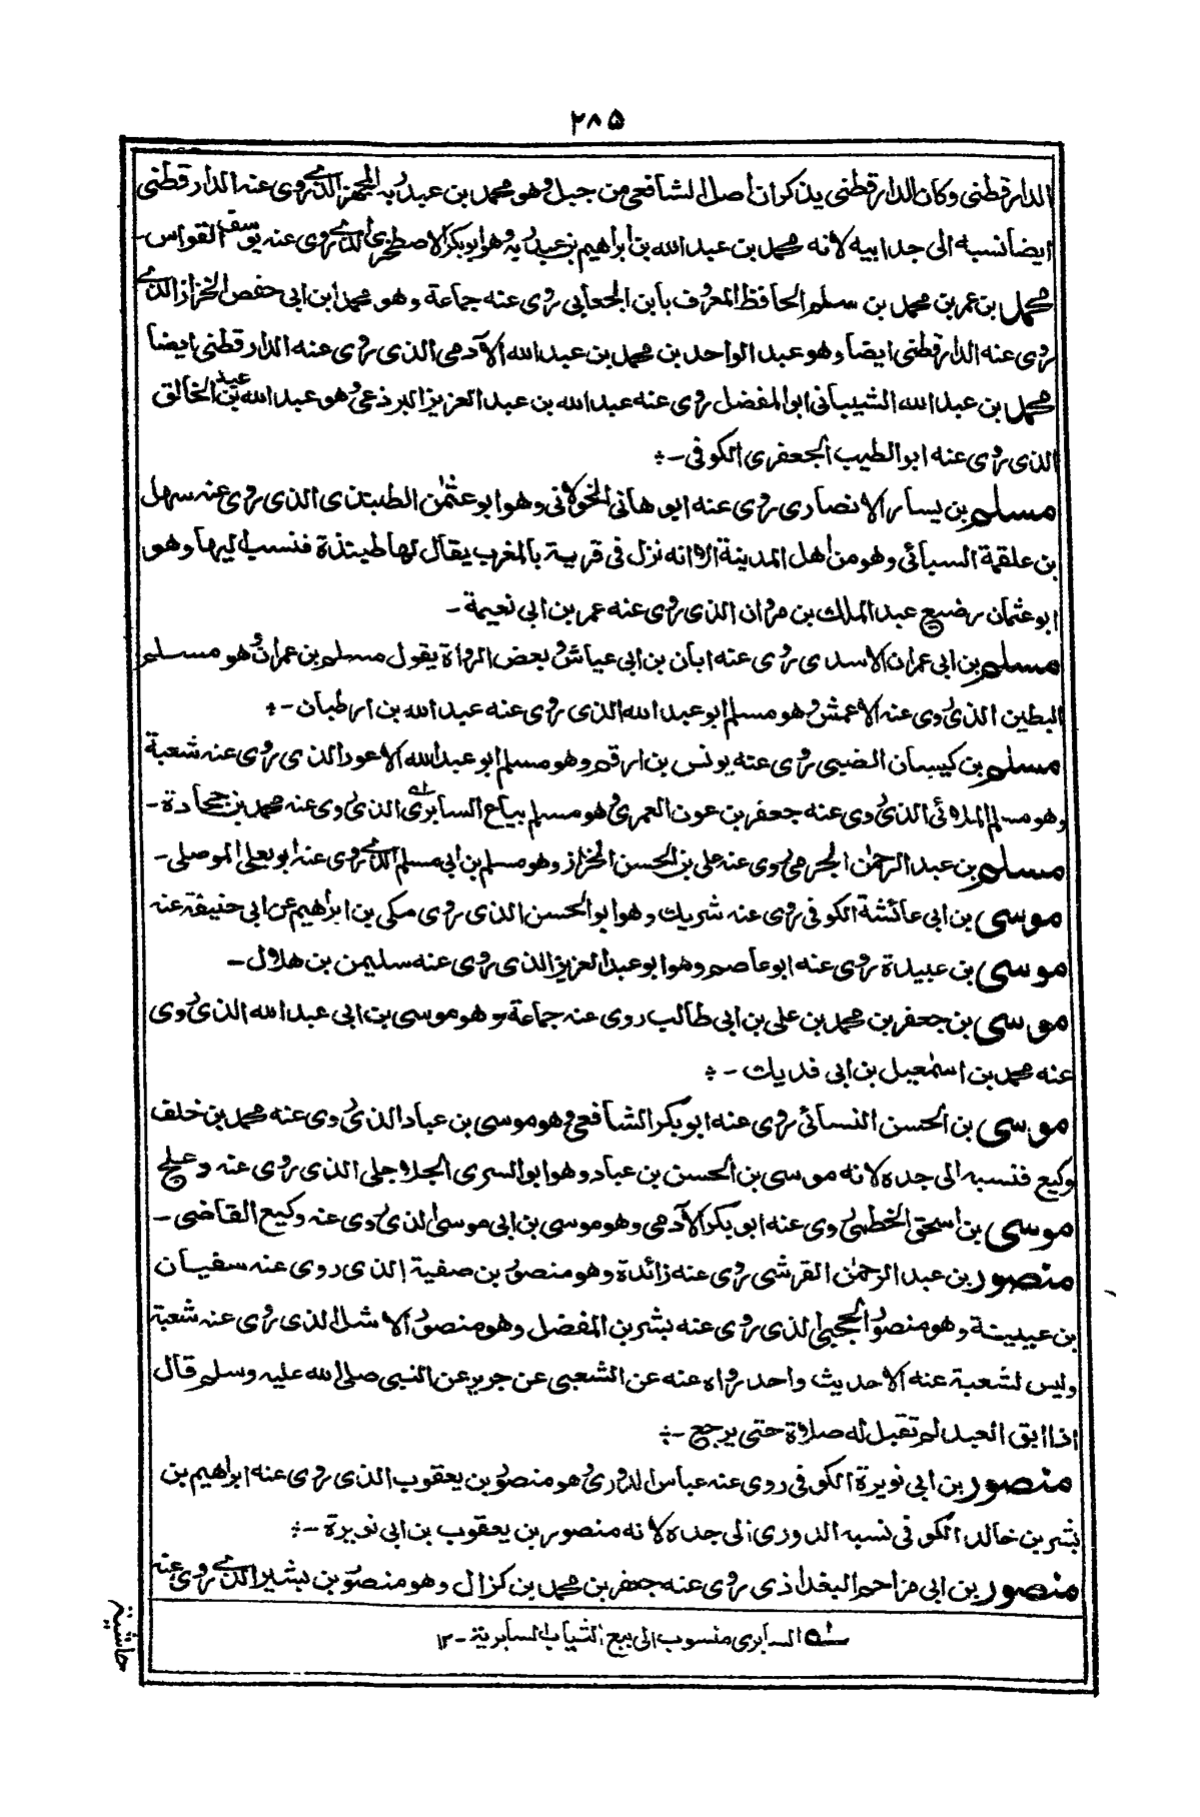 ۲۸۵
الدارقطنى وكان الدارقطنى يذكر ان اصل الشافعى من جبل وهو محمد بن عبد ربه الجهز الذى روى عنه الدارقطنى
ايضا نسبه الى جد ابيه لانه محمد بن عبد الله بن ابراهيم بن عبد ربه وهو ابو بكر الاصطخرى الذى روى عنه يوسف القواس-
محمد بن عمر بن محمد بن سلم الحافظ المعروف بابن الجعابى روى عنه جماعة وهو محمد ابن ابى حفص الخزاز الذى
روى عنه الدارقطنى ايضا وهو عبد الواحد بن محمد بن عبد الله الآدمى الذى روى عنه الدارقطنى ايضا
محمد بن عبد الله الشيبانى ابو المفضل روى عنه عبد الله بن عبد العزيز البرذعى وهو عبد الله بن عبد الخالق
الذى روى عنه ابو الطيب الجعفرى الكوفى -
مسلم بن يسار الانصارى روى عنه ابو هانى الخولانى وهو ابو عثمٰن الطبنذى الذى روى عنه سهل
بن علقمة السبائى وهو من اهل المدينة الا انه نزل فى قرية بالمغرب يقال لها طبنذة فنسب اليها وهو
ابو عثمان رضيع عبد الملك بن مروان الذى روى عنه عمر بن ابى نعيمة -
مسلم بن ابى عمران الاسدى روى عنه ابان بن ابى عياش وبعض الرواة يقول مسلم بن عمران وهو مسلم
البطين الذى روى عنه الاعمش وهو مسلم ابو عبد الله الذى روى عنه عبد الله بن ارطبان -
مسلم بن كيسان الضبى روى عنه يونس بن ارقم وهو مسلم ابو عبد الله الاعور الذى روى عنه شعبة
وهو مسلم الملائى الذى روى عنه جعفر بن عون العمرى وهو مسلم بياع السابرى الذى روى عنه محمد بن جحادة -
مسلم بن عبد الرحمٰن الجرمى روى عنه على بن الحسن الخزاز وهو مسلم بن ابى مسلم الذى روى عنه ابو يعلى الموصلى -
موسى بن ابى عائشة الكوفى روى عنه شريك وهو ابو الحسن الذى روى مكى بن ابراهيم عن ابى حنيفة عنه
موسى بن عبيدة روى عنه ابو عاصم وهو ابو عبد العزيز الذى روى عنه سليمن بن هلال -
موسى بن جعفر بن محمد بن على بن ابى طالب روى عنه جماعة وهو موسى بن ابى عبد الله الذى روى
عنه محمد بن اسمٰعيل بن ابى فديك -
موسى بن الحسن النسائى روى عنه ابو بكر الشافعى وهو موسى بن عباد الذى روى عنه محمد بن خلف
وكيع فنسبه الى جده لانه موسى بن الحسن بن عباد وهو ابو السرى الجلاجلى الذى روى عنه دعلج
موسى بن اسحق الخطمى روى عنه ابو بكر الآدمى وهو موسى بن ابى موسى الذى روى عنه وكيع القاضى -
منصور بن عبد الرحمٰن القرشى روى عنه زائدة وهو منصور بن صفية الذى روى عنه سفيان
بن عيينة وهو منصور الحجبى الذى روى عنه بشر بن المفضل وهو منصور الاشل الذى روى عنه شعبة
وليس لشعبة عنه الا حديث واحد رواه عنه عن الشعبى عن جرير عن النبى صلى الله عليه وسلم قال
اذا ابق العبد لم تقبل له صلاة حتى يرجع -
منصور بن ابى نويرة الكوفى روى عنه عباس الدورى وهو منصور بن يعقوب الذى روى عنه ابراهيم بن
بشر بن خالد الكوفى نسبه الدورى الى جده لانه منصور بن يعقوب بن ابى نويرة -
منصور بن ابى مزاحم البغداذى روى عنه جعفر بن محمد بن كزال وهو منصور بن بشير الذى روى عنه
لـه السابرى منسوب الى بيع الثياب السابرية - ۱۲
حاشية